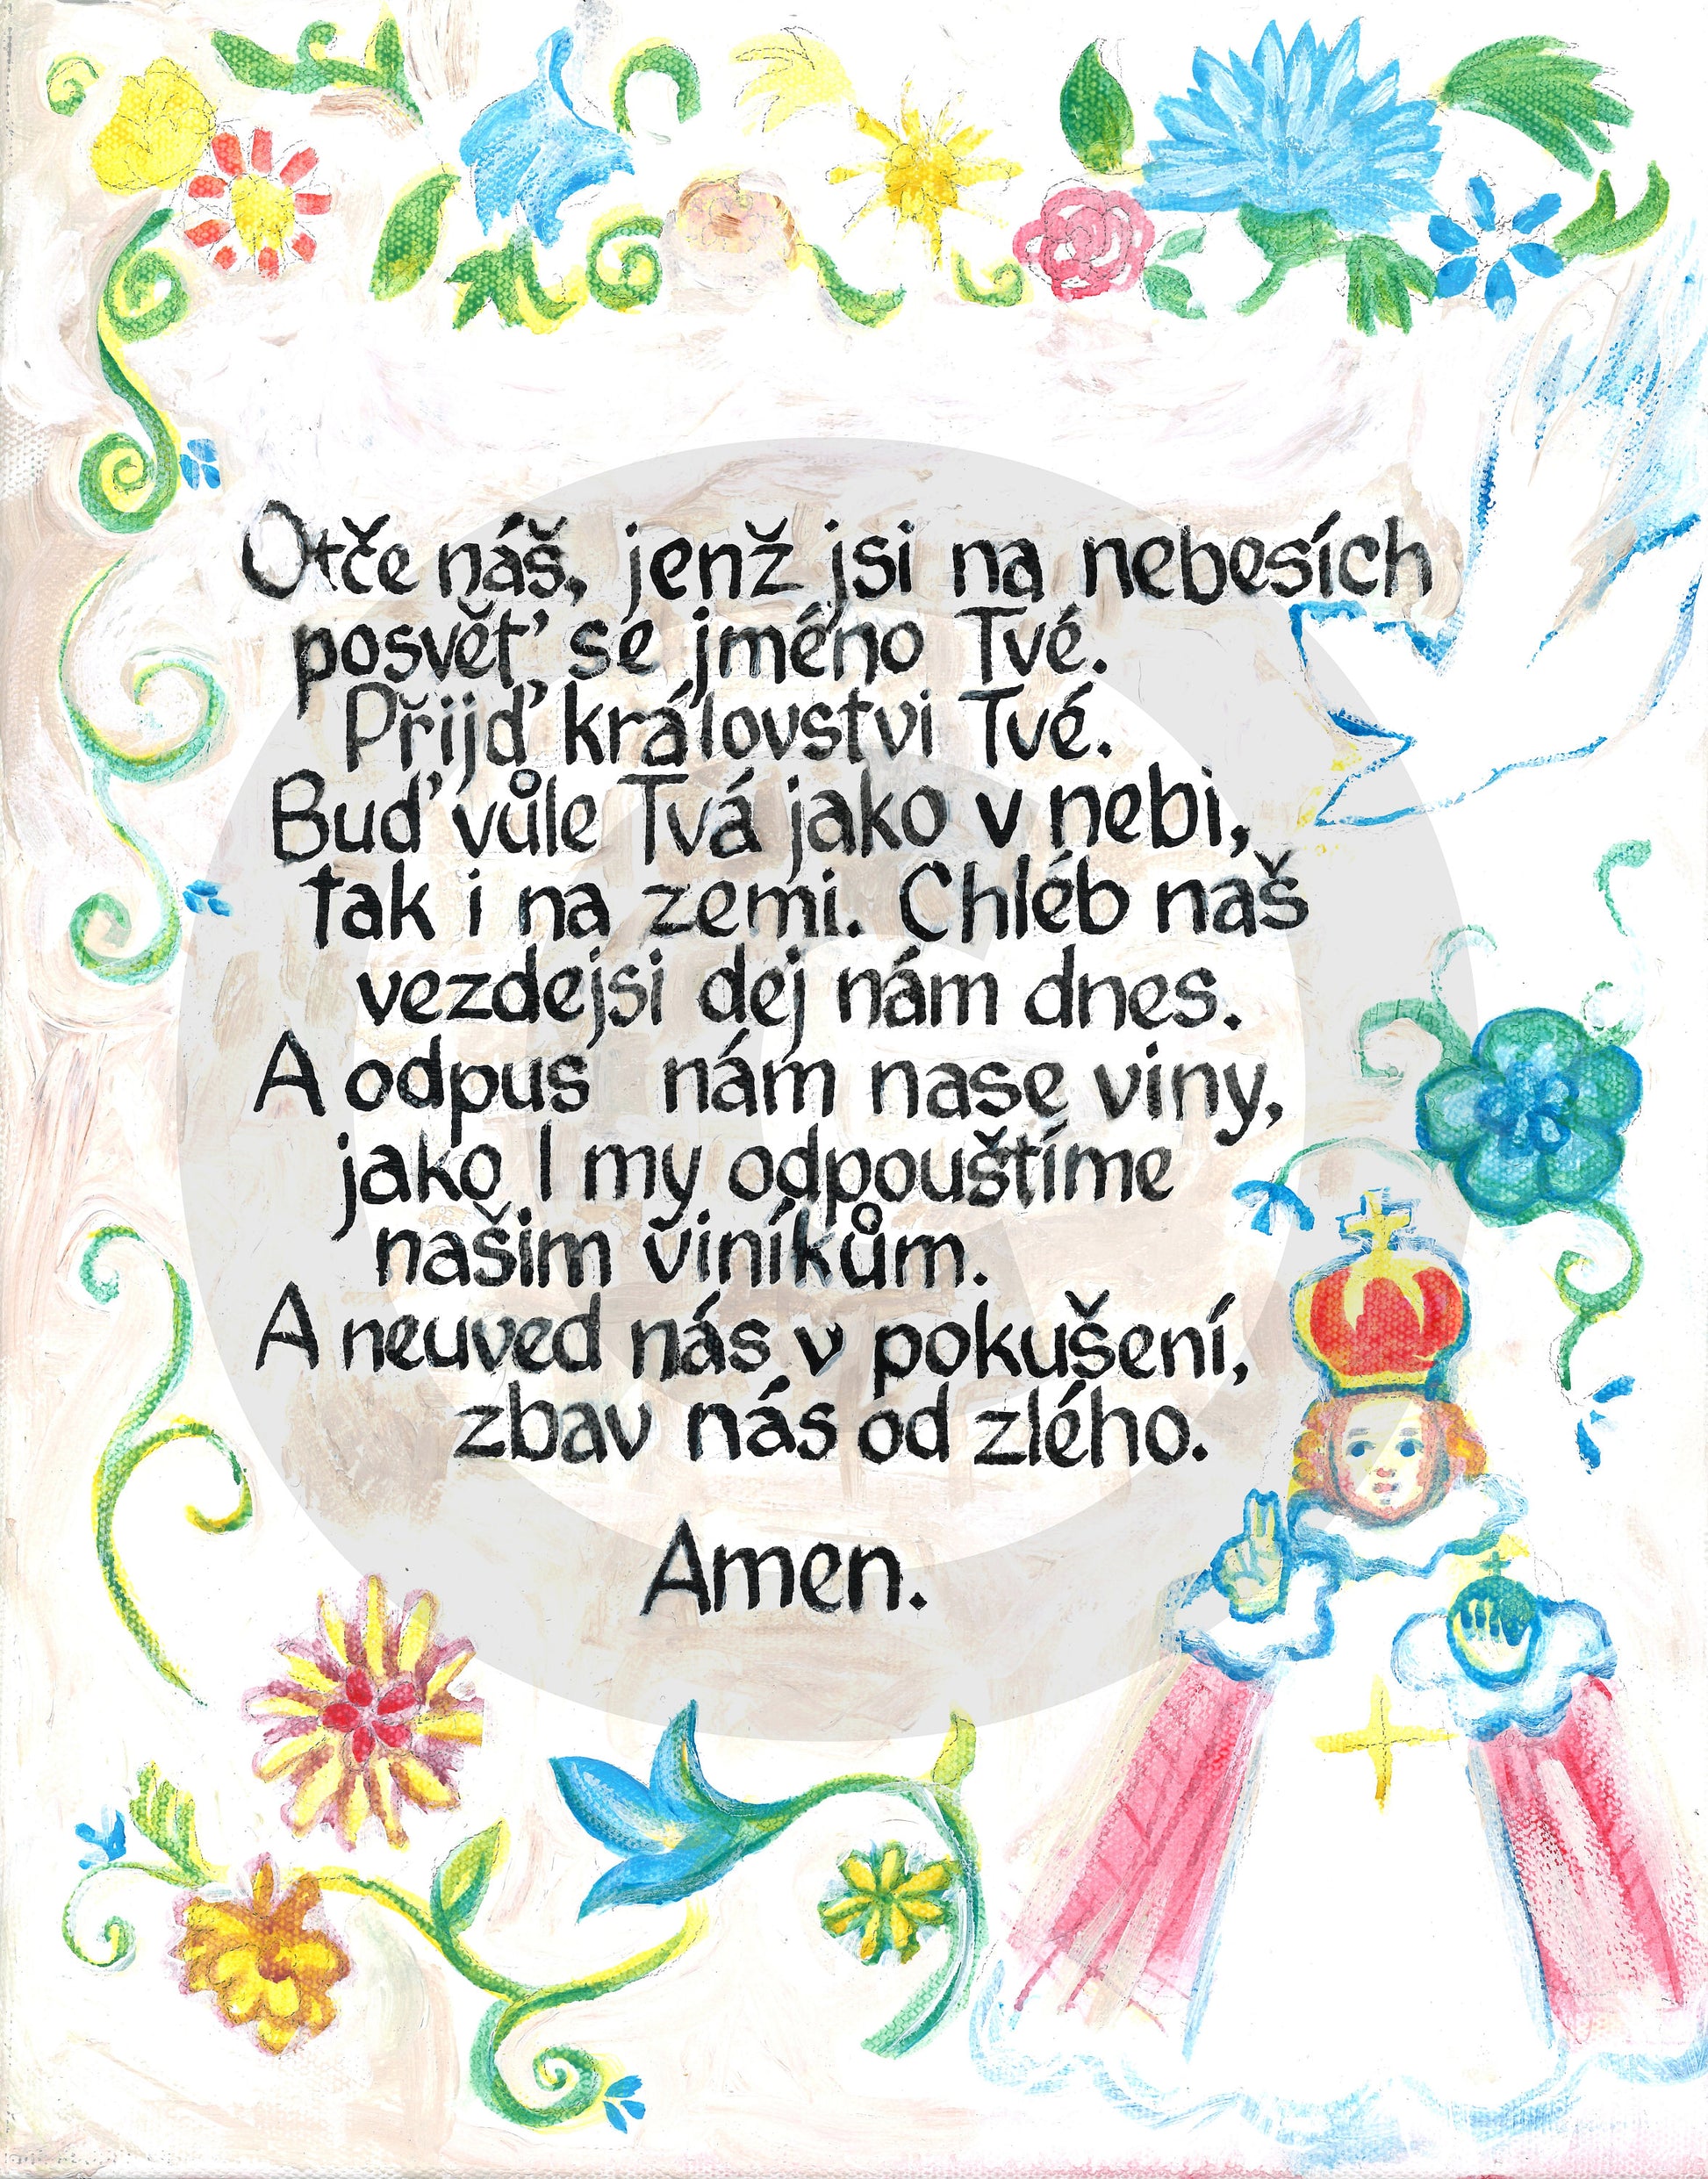 Otče náš, jenž jsi na nebesích
posvěť se jméno Tvé.
Přijď královstvi Tvé.
Buď vůle Tvá jako v nebi,
tak i na zemi. Chléb naš
vezdejsi dej nám dnes.
A odpus nám nase viny,
jako I my odpouštíme
našim viníkům.
A neuved nás v pokušení,
zbav nás od zlého.
Amen.
©